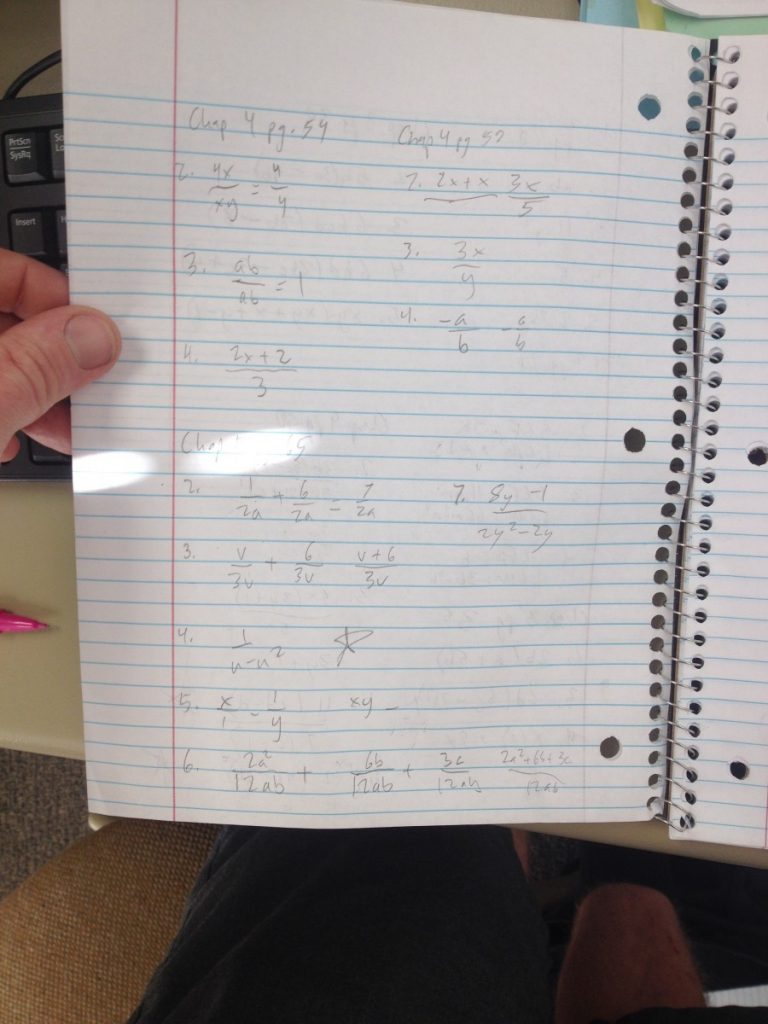 PrtScn
SysRq
Insert
Chap 4 pg. 54
2. 4x/xy = 4/y
3. ab/ab = 1
4. 2x+2/3
Chap 4 pg 57
2x+x 3x/5
3. 3x/y
4. -a/b -a/b
Chap
2. 1/2a + 6/2a = 7/2a
3. v/3v + 6/3v v+6/3v
4. 1/n-n²
5. x/1 - 1/y xy -
6. 2a²/12ab + 6b/12ab + 3c/12ab 2a²+6b+3c/12ab
7. 8y-1/2y²-2y